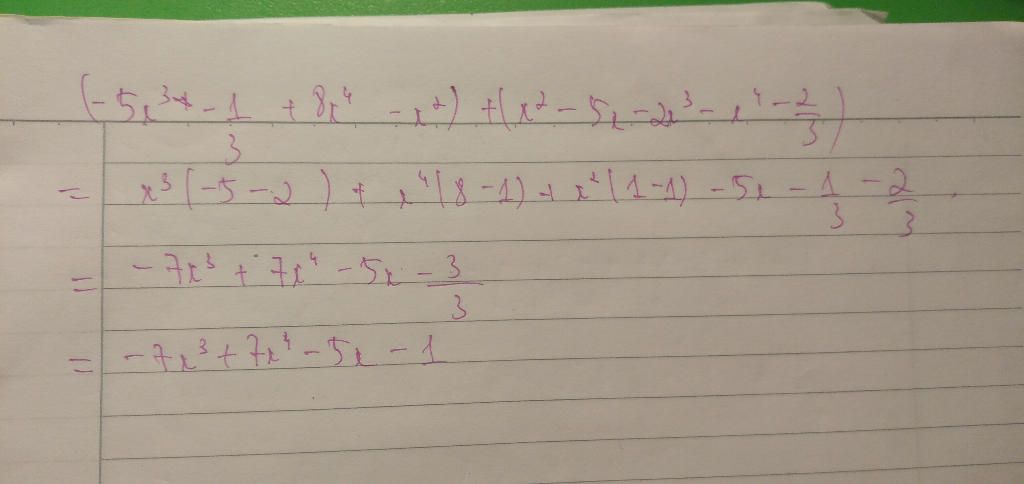 (-5x³ - 1/3 + 8x⁴ - x²) + (x² - 5x - 2x³ - x⁴ - 2/3)
= x³(-5 - 2) + x⁴(8 - 1) + x²(1 - 1) - 5x - 1/3 - 2/3
= -7x³ + 7x⁴ - 5x - 3/3
= -7x³ + 7x⁴ - 5x - 1